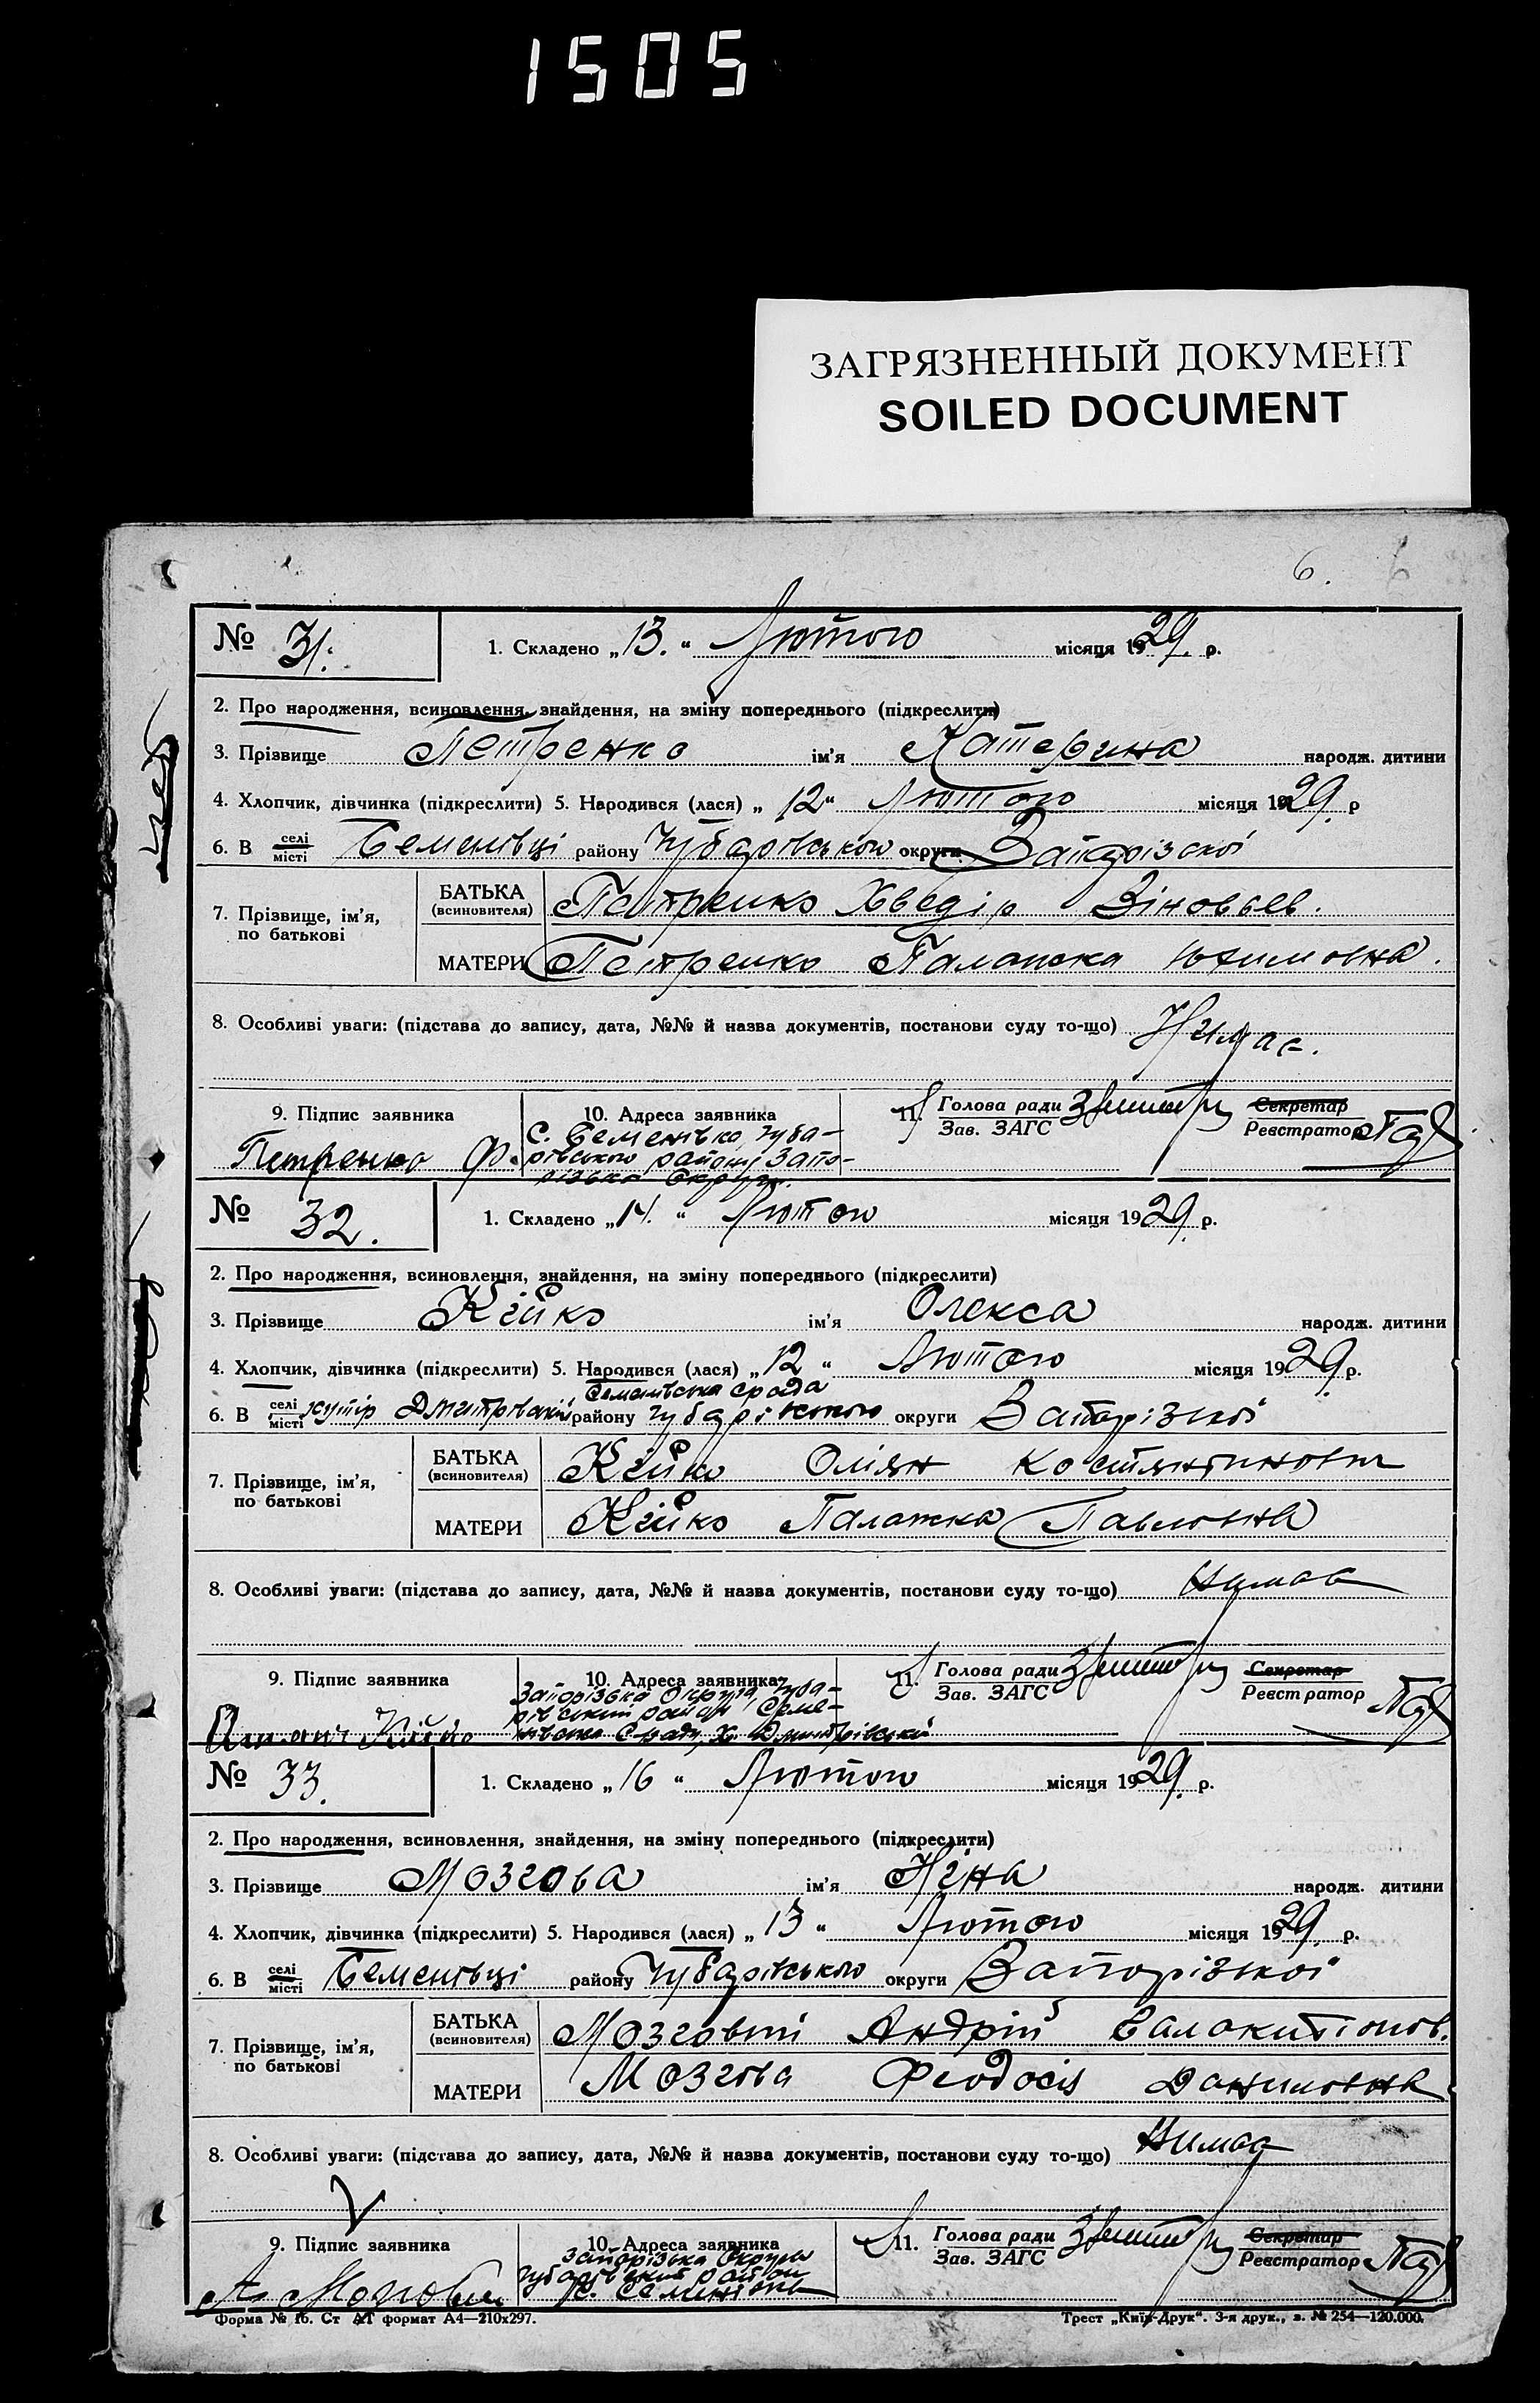 1505
ЗАГРЯЗНЕННЫЙ ДОКУМЕНТ
SOILED DOCUMENT
6. 6
№ 31. 1. Складено „13.“ Лютого місяця 1929. р.
2. Про народження, всиновлення, знайдення, на зміну попереднього (підкреслити)
3. Прізвище Петренко ім'я Катерина народж. дитини
4. Хлопчик, дівчинка (підкреслити) 5. Народився (лася) „12“ Лютого місяця 1929. р
6. В селі місті Семенівці району Чубарівського округи Запорізької
7. Прізвище, ім'я, по батькові
БАТЬКА (всиновителя) Петренко Хведір Зіновьев.
МАТЕРИ Петренко Палажка Юхимовна.
8. Особливі уваги: (підстава до запису, дата, №№ й назва документів, постанови суду то-що) Нимає.
9. Підпис заявника 10. Адреса заявника 11. Голова ради Зав. ЗАГС Секретар Реєстратор
Петренко Ф. с. Семенівка, Чуба-
рівського району Запо-
різька Округи.
№ 32. 1. Складено „14.“ Лютого місяця 1929. р.
2. Про народження, всиновлення, знайдення, на зміну попереднього (підкреслити)
3. Прізвище Кійко ім'я Олекса народж. дитини
4. Хлопчик, дівчинка (підкреслити) 5. Народився (лася) „12“ Лютого місяця 1929. р.
Семенівська срада
6. В селі місті хутір Дмитрівский району Чубарівського округи Запорізької
7. Прізвище, ім'я, по батькові
БАТЬКА (всиновителя) Кійко Оліян Костянтинович
МАТЕРИ Кійко Палажка Павловна
8. Особливі уваги: (підстава до запису, дата, №№ й назва документів, постанови суду то-що) Нимає
9. Підпис заявника 10. Адреса заявника 11. Голова ради Зав. ЗАГС Секретар Реєстратор
Кійко Запорізька Округа, Чуба-
рівський район Семе-
нівська Срада, х. Дмитрівський
№ 33. 1. Складено „16“ Лютого місяця 1929. р.
2. Про народження, всиновлення, знайдення, на зміну попереднього (підкреслити)
3. Прізвище Мозгова ім'я Ніна народж. дитини
4. Хлопчик, дівчинка (підкреслити) 5. Народився (лася) „13“ Лютого місяця 1929. р.
6. В селі місті Семенівці району Чубарівського округи Запорізької
7. Прізвище, ім'я, по батькові
БАТЬКА (всиновителя) Мозговий Андрій
МАТЕРИ Мозгова Феодосія Даниловна
8. Особливі уваги: (підстава до запису, дата, №№ й назва документів, постанови суду то-що) Нимає
9. Підпис заявника 10. Адреса заявника 11. Голова ради Зав. ЗАГС Секретар Реєстратор
Запорізька Округа
Чубарівський район
с. Семенівка
Форма № 1б. Ст АТ формат А4—210х297. Трест „Київ-Друк“. 3-я друк., з. № 254—120.000.